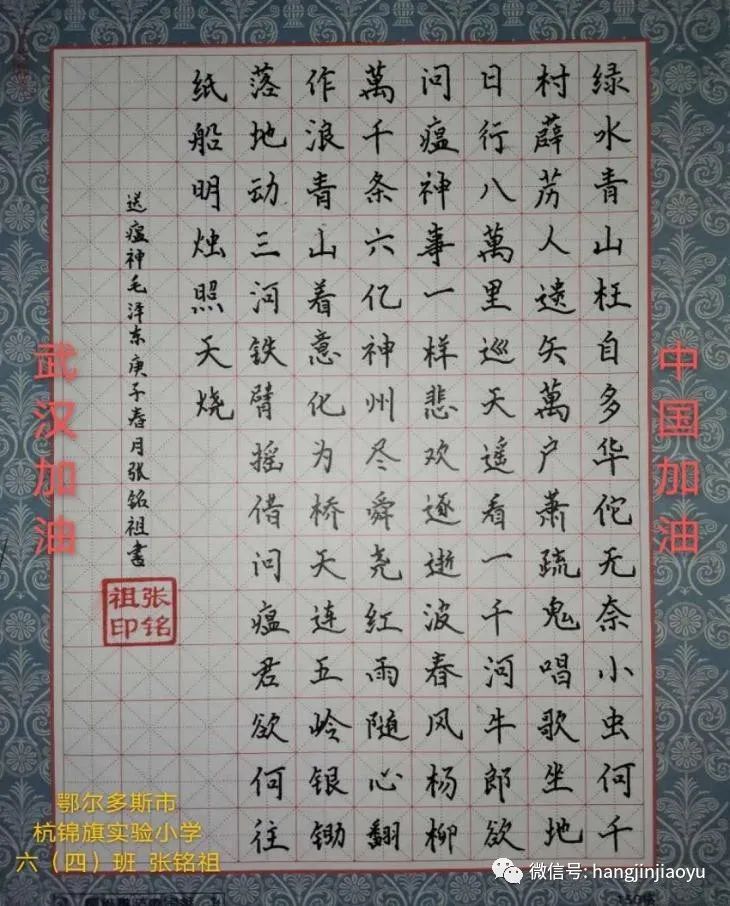 中国加油
绿水青山枉自多华佗无奈小虫何千
村薜苈人遗矢萬户萧疏鬼唱歌坐地
日行八萬里巡天遥看一千河牛郎欲
问瘟神事一样悲欢逐逝波春风杨柳
萬千条六亿神州尽舜尧红雨随心翻
作浪青山着意化为桥天连五岭银锄
落地动三河铁臂摇借问瘟君欲何往
纸船明烛照天烧
送瘟神毛泽东庚子春月张铭祖书
张铭
祖印
武汉加油
鄂尔多斯市
杭锦旗实验小学
六（四）班 张铭祖
微信号: hangjinjiaoyu